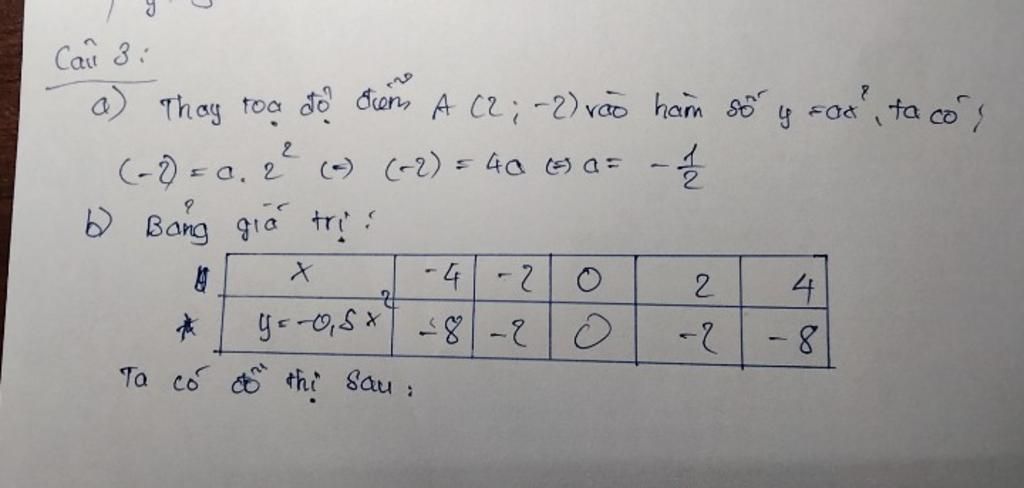 Câu 3:
a) Thay toạ độ điểm A (2; -2) vào hàm số y = ax², ta có;
(-2) = a. 2² (=) (-2) = 4a (=) a = - 1/2
b) Bảng giá trị:
x -4 -2 0 2 4
y = -0,5x² -8 -2 0 -2 -8
Ta có đồ thị sau: